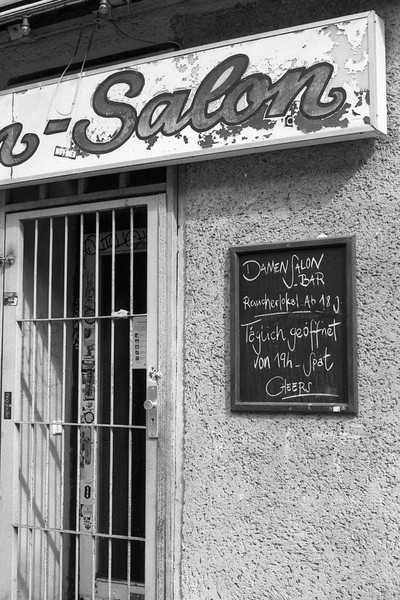 n-Salon
DAMENSALON
-BAR
Raucherlokal. Ab 18 J.
Täglich geöffnet
von 19h - Spät
CHEERS